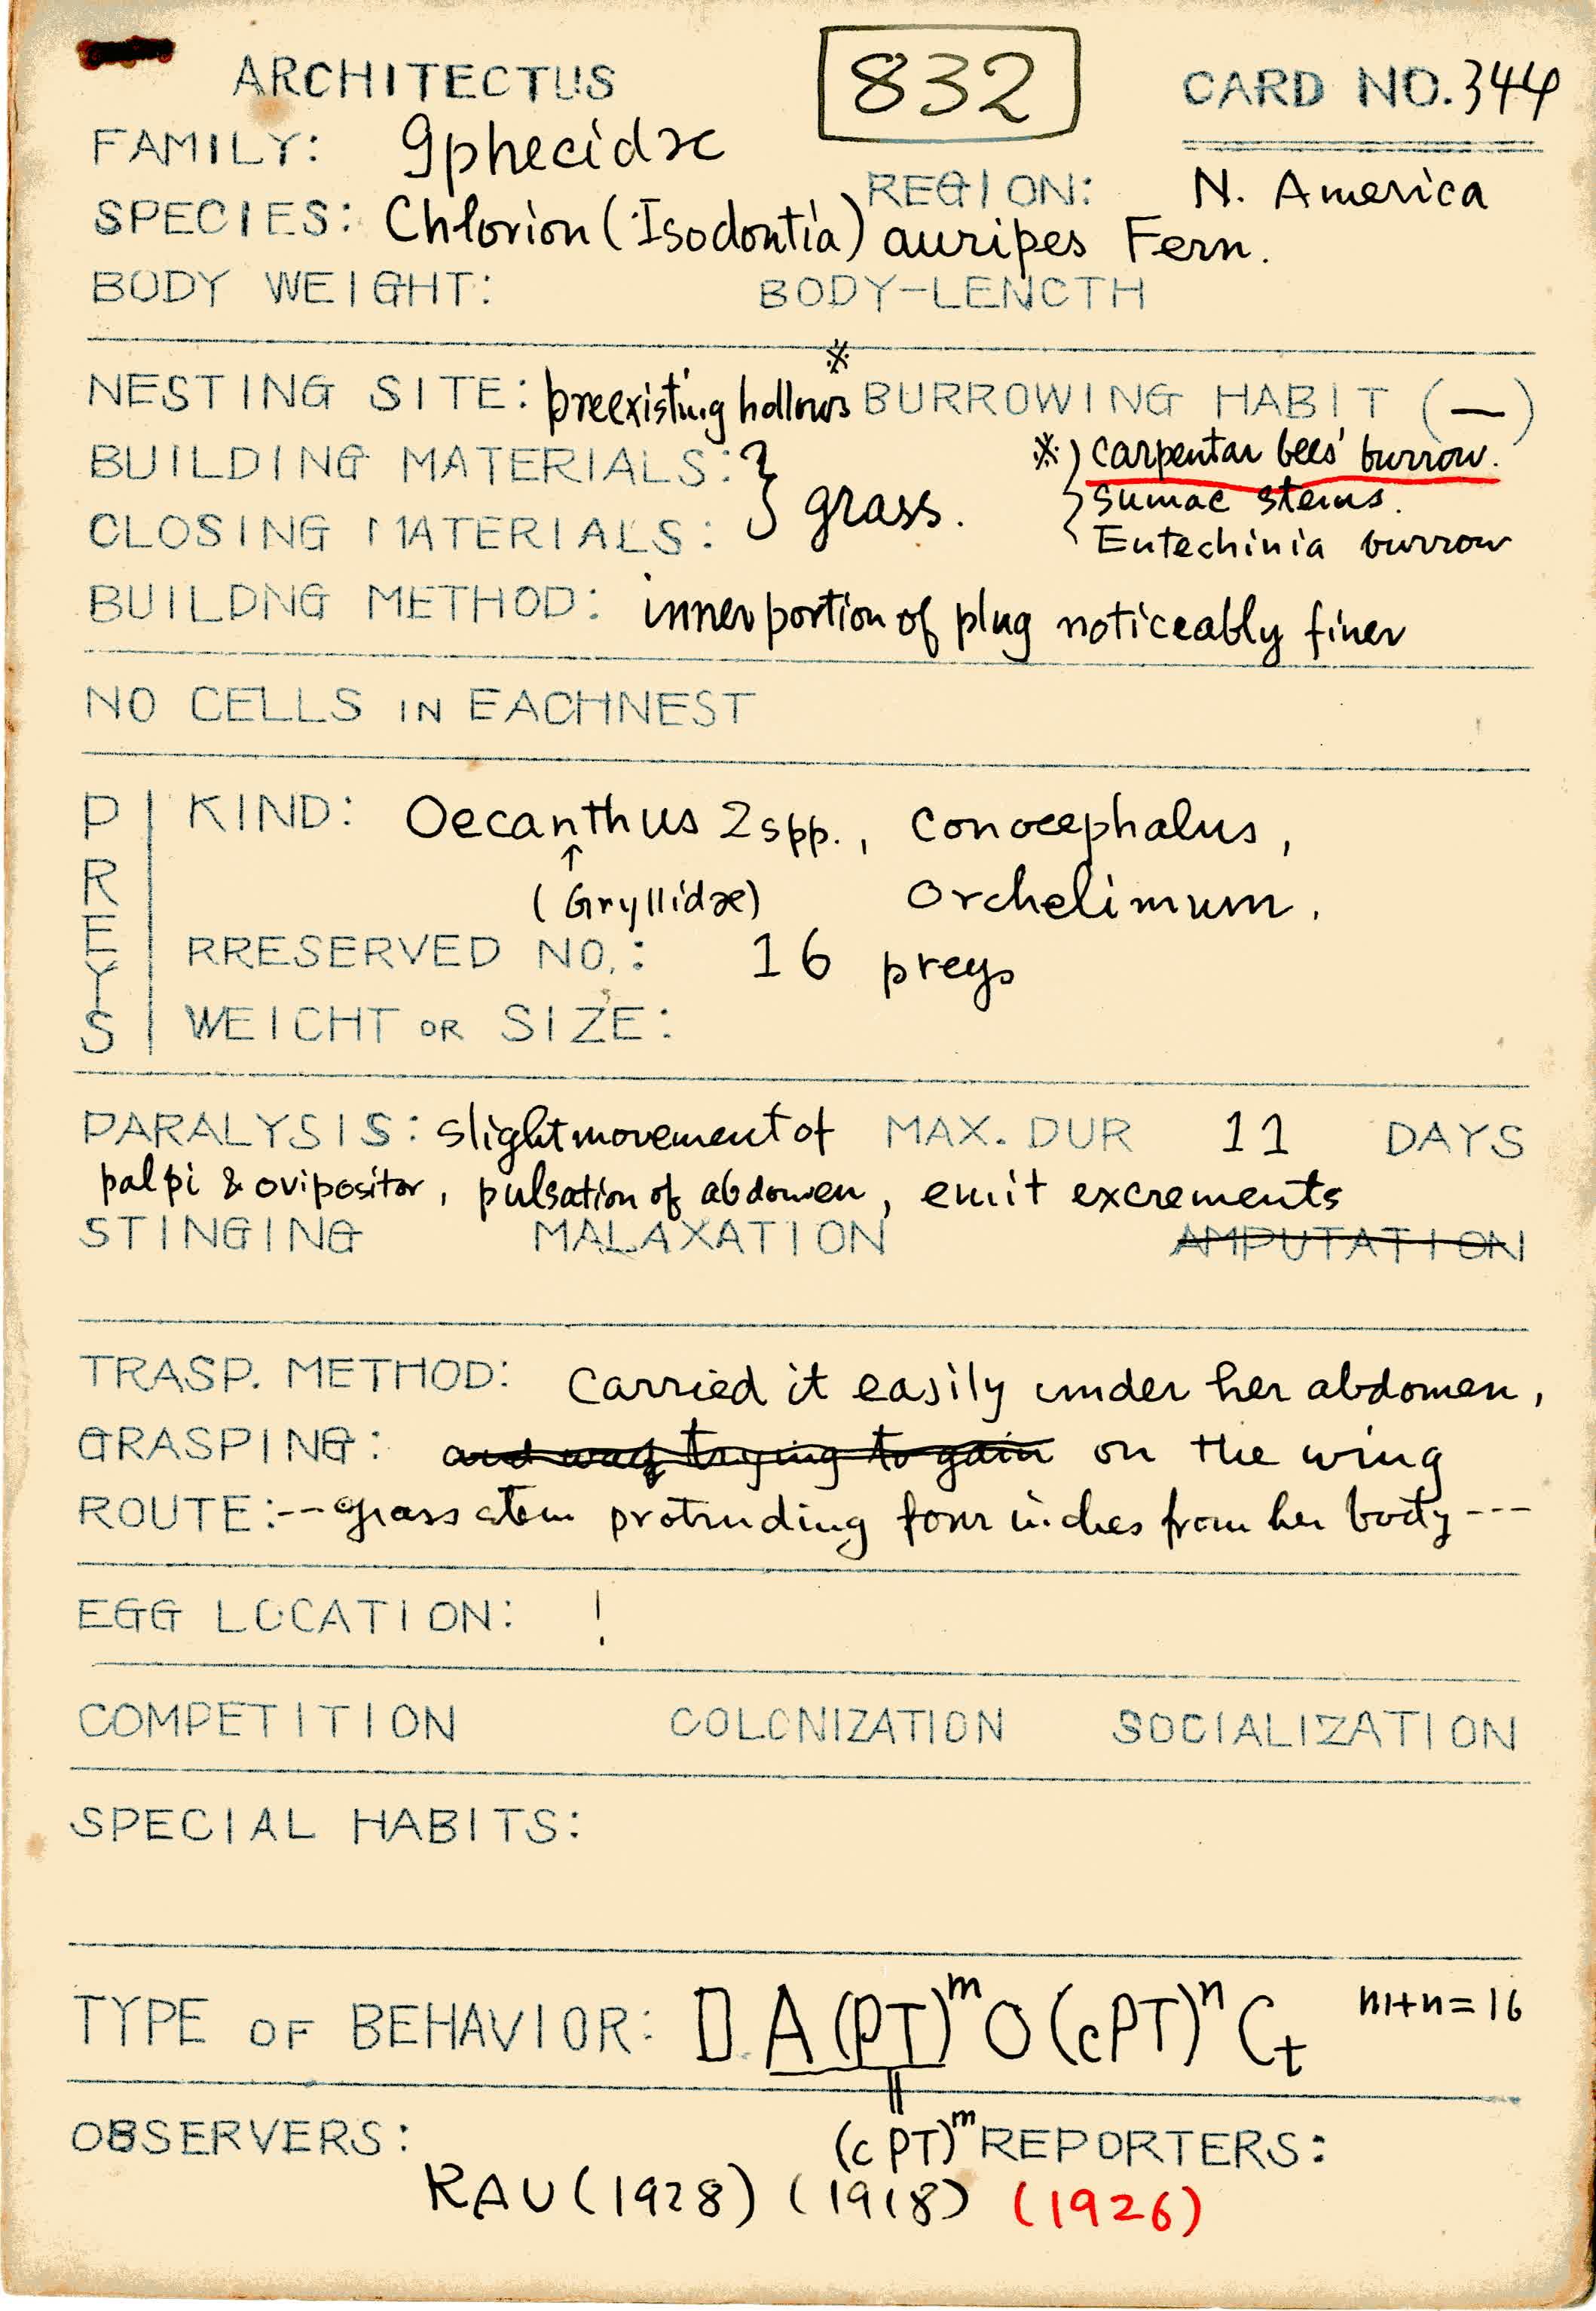 ARCHITECTUS 832 CARD NO. 344
FAMILY: Sphecidæ
REGION: N. America
SPECIES: Chlorion (Isodontia) auripes Fern.
BODY WEIGHT: BODY-LENCTH
NESTING SITE: preexisting hollows ※ BURROWING HABIT (—)
BUILDING MATERIALS: ※) carpentar bees' burrow.
CLOSING MATERIALS: } grass. sumac stems.
Eutechinia burrow
BUILDNG METHOD: inner portion of plug noticeably finer
NO CELLS IN EACHNEST
PREYS
KIND: Oecanthus 2 spp., Conocephalus,
↑
(Gryllidæ) Orchelimum.
RRESERVED NO.: 16 preys
WEICHT OR SIZE:
PARALYSIS: slight movement of MAX. DUR 11 DAYS
palpi & ovipositor, pulsation of abdomen, emit excrements
STINGING MALAXATION AMPUTATION
TRASP. METHOD: Carried it easily under her abdomen,
GRASPING: and was trying to gain on the wing
ROUTE: -- grass stem protruding four inches from her body ---
EGG LOCATION: !
COMPETITION COLONIZATION SOCIALIZATION
SPECIAL HABITS:
TYPE OF BEHAVIOR: D A (PT)ᵐ O (cPT)ⁿ Ct m+n=16
OBSERVERS: (cPT)ᵐ REPORTERS:
RAU (1928) (1918) (1926)